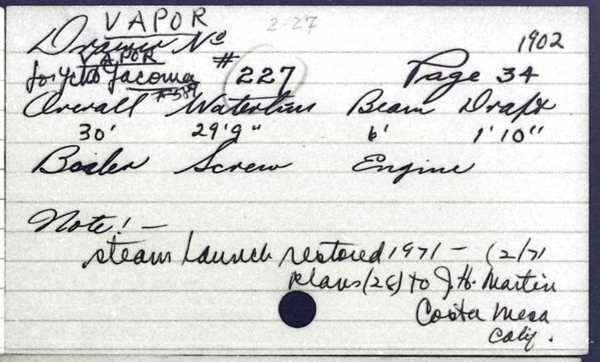 VAPOR 2-27
Drawer No 1902
VAPOR
for Ycht Tacoma # 227 Page 34
Overall Waterline Beam Draft
30' 29'9" 6' 1'10"
Boiler Screw Engine
Note! —
Steam Launch restored 1971 — (2/71
plans (26) to J. H. Martin
Costa Mesa
Calif.